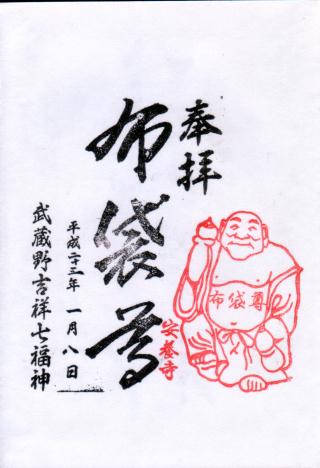 奉拝
布袋尊
布袋尊
安養寺
平成二十三年 一月八日
武蔵野吉祥七福神